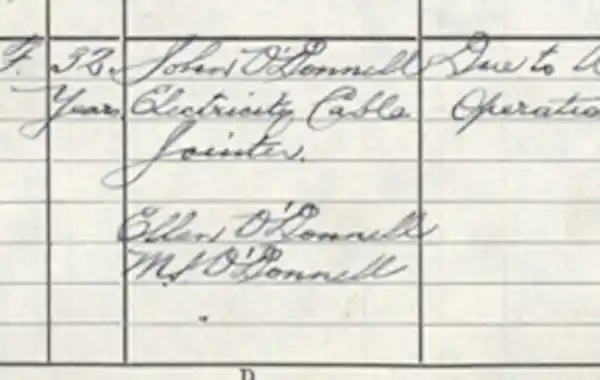 F. 32 John O'Donnell Due to
Years Electricity Cable Operatio
Jointer.
Ellen O'Donnell
M.S. O'Donnell